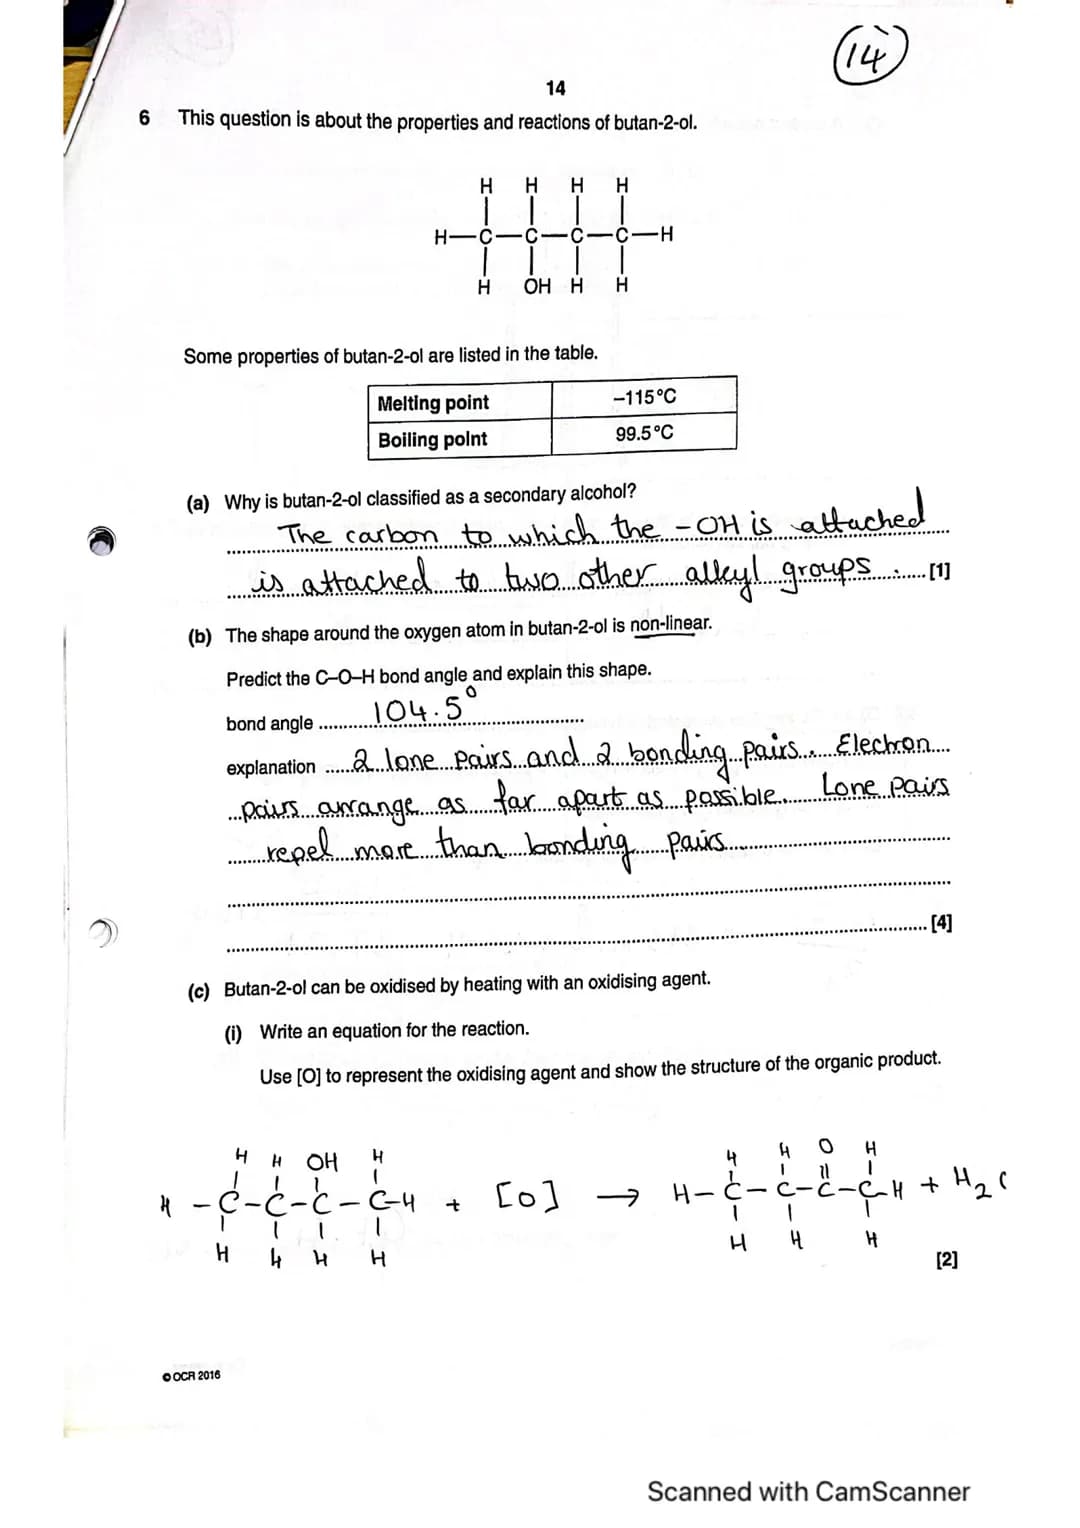 14
14
6 This question is about the properties and reactions of butan-2-ol.
H H H H
H—C—C—C—C—H
H OH H H
Some properties of butan-2-ol are listed in the table.
Melting point –115°C
Boiling point 99.5°C
(a) Why is butan-2-ol classified as a secondary alcohol?
The carbon to which the -OH is attached
is attached to two other alkyl groups. [1]
(b) The shape around the oxygen atom in butan-2-ol is non-linear.
Predict the C–O–H bond angle and explain this shape.
bond angle 104.5°
explanation 2 lone pairs and 2 bonding pairs. Electron
pairs arrange as far apart as possible. Lone pairs
repel more than bonding pairs.
[4]
(c) Butan-2-ol can be oxidised by heating with an oxidising agent.
(i) Write an equation for the reaction.
Use [O] to represent the oxidising agent and show the structure of the organic product.
H H OH H H H O H
H-C-C-C-C-H + [O] → H-C-C-C-C-H + H2O
H H H H H H H
[2]
© OCR 2016
Scanned with CamScanner